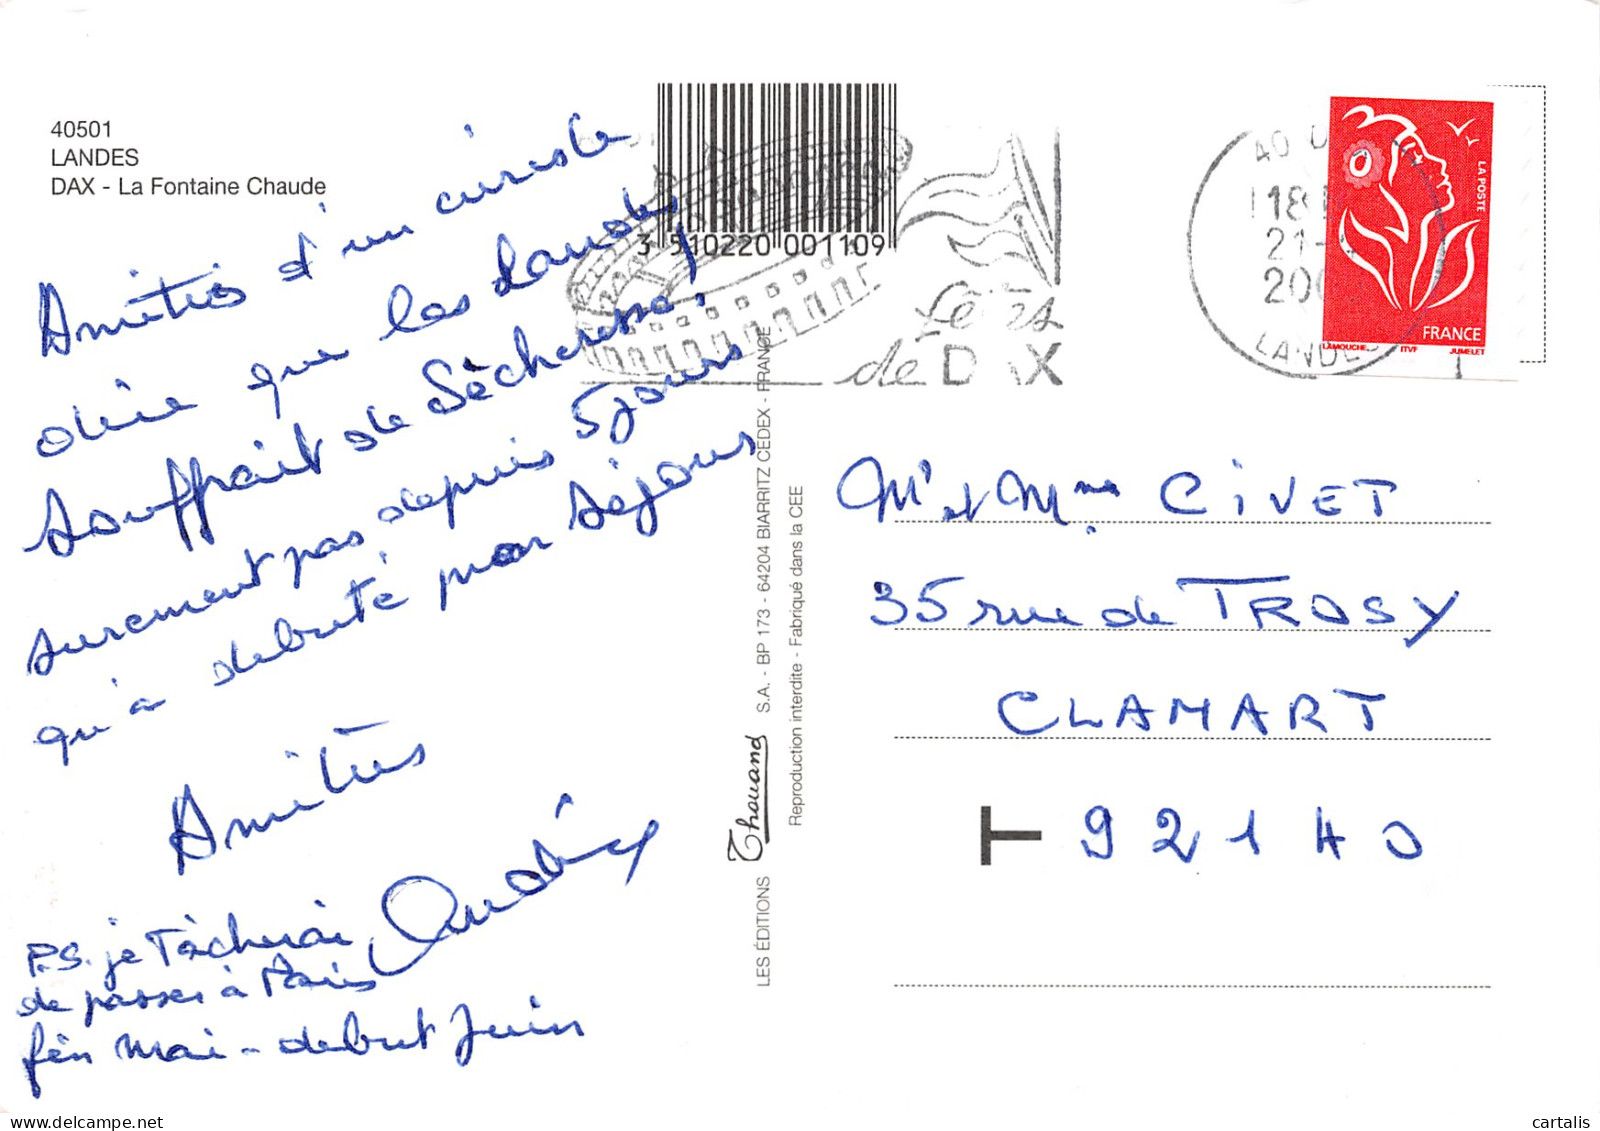 40501
LANDES
DAX - La Fontaine Chaude
Amitiés d'un curiste
dire que les Landes
souffrait de sécheresse,
surement pas depuis 5 jours
qu'a debuté mon séjour
Amitiés
P.S. je tâcherai
de passer à Paris
fin mai - debut Juin
3 510220 001109
Fêtes
de DAX
18
21-
200
LANDES
LA POSTE
FRANCE
LAMOUCHE ITVF JUMELET
LES ÉDITIONS Thouand S.A. - BP 173 - 64204 BIARRITZ CEDEX - FRANCE
Reproduction interdite - Fabriqué dans la CEE
Mr et Mme CIVET
35 rue de TROSY
CLAMART
T 92140
cartalis